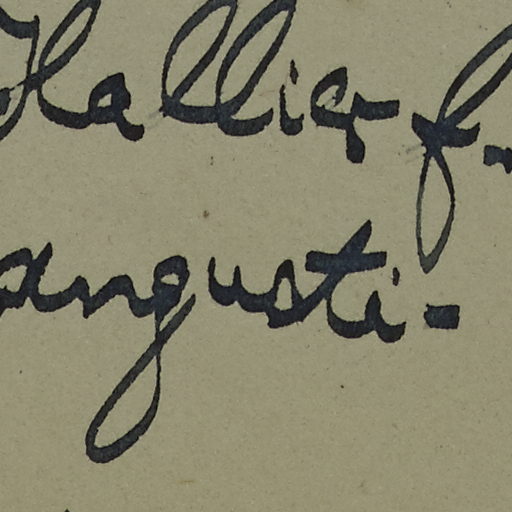 Hallier f.
angusti-